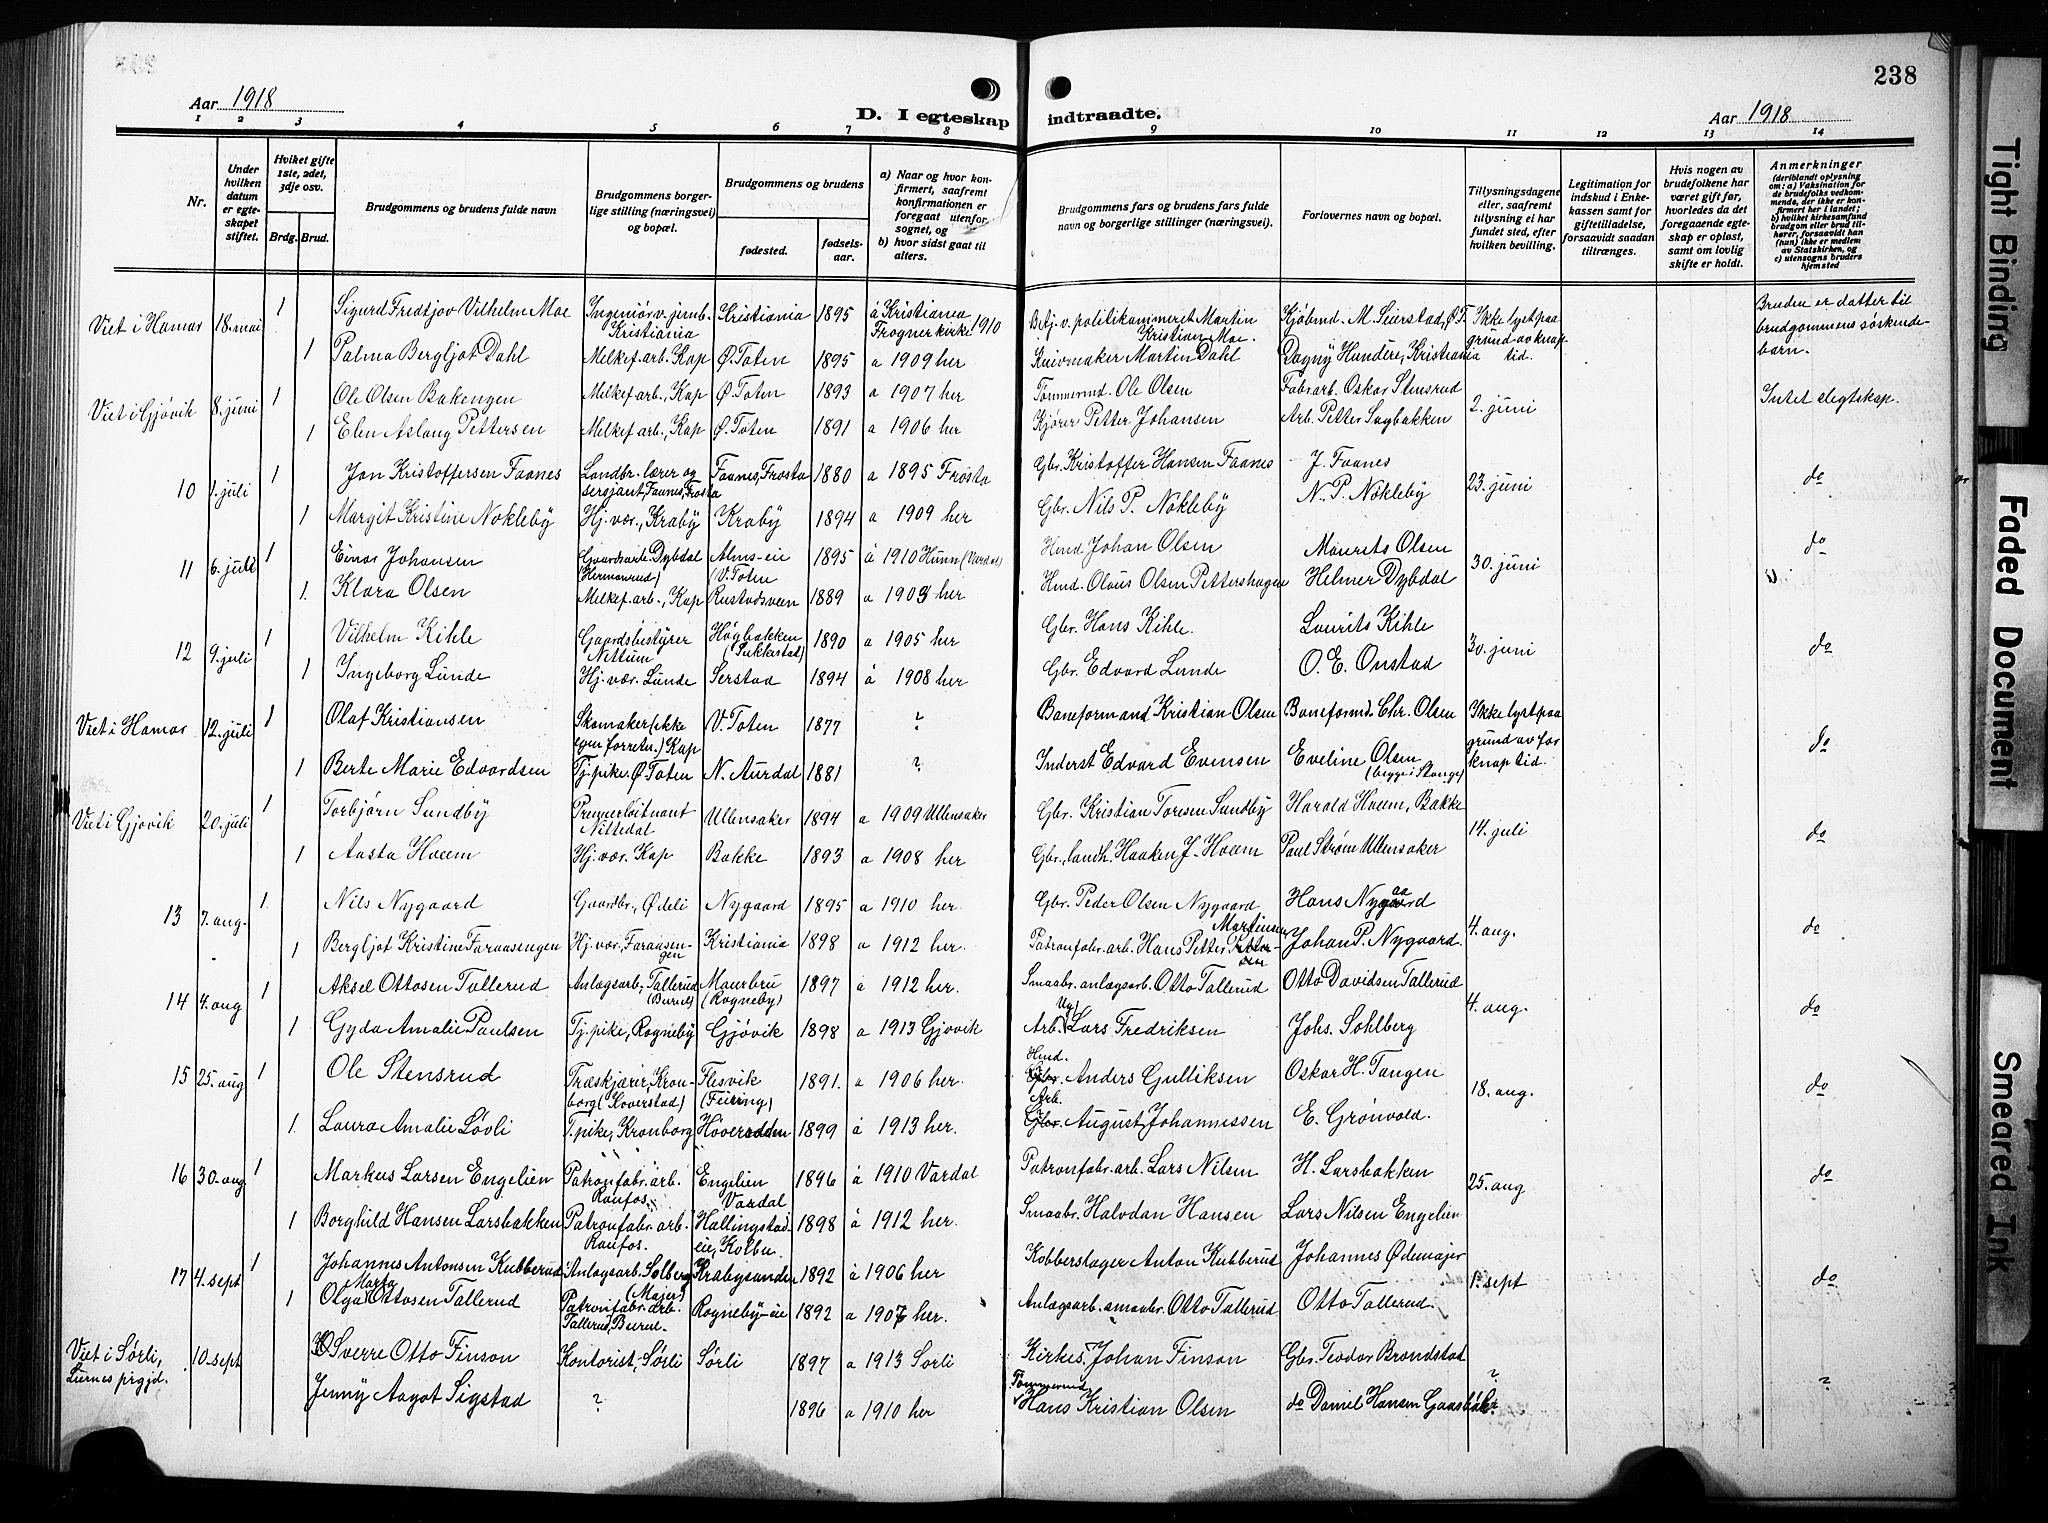 238
Aar 1918
D. I egteskap indtraadte.
Aar 1918
1 2 3 4 5 6 7 8 9 10 11 12 13 14
Nr.
Under hvilken datum er egteskapet stiftet.
Hvilket gifte 1ste, 2det, 3dje osv.
Brdg. Brud.
Brudgommens og brudens fulde navn
Brudgommens borgerlige stilling (næringsvei) og bopæl.
Brudgommens og brudens
fødested.
fødselsaar.
a) Naar og hvor konfirmert, saafremt konfirmationen er foregaat utenfor sognet, og
b) hvor sidst gaat til alters.
Brudgommens fars og brudens fars fulde navn og borgerlige stillinger (næringsvei).
Forlovernes navn og bopæl.
Tillysningsdagene eller, saafremt tillysning ei har fundet sted, efter hvilken bevilling.
Legitimation for indskud i Enkekassen samt for giftetilladelse, forsaavidt saadan tiltrænges.
Hvis nogen av brudefolkene har været gift før, hvorledes da det foregaaende egteskap er opløst, samt om lovlig skifte er holdt.
Anmerkninger
(deriblandt oplysning om: a) Vaksination for de brudefolks vedkommende, der ikke er konfirmert her i landet; b) hvilket kirkesamfund brudgom eller brud tilhører, forsaavidt han (hun) ikke er medlem av Statskirken, og c) utensogns bruders hjemsted
Viet i Hamar 18. mai 1 Sigurd Fredtjov Vilhelm Moe Ingeniør v. jernb. Kristiania Kristiania 1895 a Kristiania Frogner kirke 1910 Betj. v. politikammeret Martin Kristian Moe. Kjøbmd. M. Seierstad, Ø.T. Ikke lyst paa grund av knap tid. Bruden er datter til brudgommens søskendebarn.
1 Palma Bergljot Dahl Melkef. arb. Kap Ø. Toten 1895 a 1909 her Martin Dahl Dagny Hundere, Kristiania
Viet i Gjøvik 8. juni 1 Ole Olsen Bakengen Melkef. arb., Kap Ø. Toten 1893 a 1907 her Tømmermd. Ole Olsen Fabr. arb. Oskar Stensrud 2. juni Intet slegtskap.
1 Elen Aslaug Pettersen Melkef. arb., Kap Ø. Toten 1891 a 1906 her Kjører Petter Johansen Arb. Petter Sagbakken
10 1. juli 1 Jon Kristoffersen Faanes Landbr. lærer og sersjant, Faanes, Frosta Faanes, Frosta 1880 a 1895 Frosta Gbr. Kristoffer Hansen Faanes J. Faanes 23. juni do
1 Margit Kristine Nøkleby Hj. vær., Kraby Kraby 1894 a 1909 her Gbr. Nils P. Nøkleby N. P. Nøkleby
11 6. juli 1 Einar Johansen Dybdal (Hermanrud) Alms-eie (V. Toten 1895 a 1910 Hunn (Vardal) Hmd. Johan Olsen Maurits Olsen 30. juni do
1. Klara Olsen Melkef. arb., Kap Rustadsveen 1889 a 1903 her Hmd. Olaus Olsen Pettershagen Helmer Dybdal
12 9. juli 1 Vilhelm Kihle Gaardsbestyrer Nettum Høgbakken (Sukkestad) 1890 a 1905 her Gbr. Hans Kihle. Laurits Kihle 30. juni do
1 Ingeborg Lunde Hj. vær. Lunde Serstad 1894 a 1908 her Gbr. Edvard Lunde O. E. Onstad
Viet i Hamar 12. juli 1 Olaf Kristiansen Skomaker (ikke egen forretn.) Kap V. Toten 1877 ? Baneformand Kristian Olsen Baneformd. Chr. Olsen Ikke lyst paa grund av for knap tid. do
1 Berte Marie Edvardsen Tj. pike. Ø. Toten N. Aurdal 1881 ? Inderst Edvard Evensen Eveline Olsen (begge i Stange)
Viet i Gjøvik 20. juli 1 Torbjørn Sundby Premierløitnant Nittedal Ullensaker 1894 a 1909 Ullensaker Gbr. Kristian Toresen Sundby Harald Hveem, Bakke 14. juli do
1 Aasta Hveem Hj. vær. Kap Bakke 1893 a 1908 her Gbr., landh. Haaken J. Hveem Paul Strøm Ullensaker
13 7. aug. 1 Nils Nygaard Gaardbr., Ødeli Nygaard 1895 a 1910 her Gbr. Peder Olsen Nygaard Hans Nygaard 4. aug. do
1 Bergljot Kristine Faraasengen Hj. vær., Faraasengen Kristiania 1898 a 1912 her. Patronfabr. arb. Hans Petter Martinsen Johan P. Nygaard.
14 4. aug 1 Aksel Ottosen Tallerud Anlægsarb., Tallerud Maurbru (Rogneby) 1897 a 1912 her. Smaabr. anlægsarb. Otto Tallerud Otto Davidsen Tallerud 4. aug. do
1 Gyda Amalie Paulsen Tj. pike, Rogneby Gjøvik 1898 a 1913 Gjøvik Arb. Lars Fredriksen Johs. Sohlberg
15 25. aug 1 Ole Stensrud Træskjærer, Kronborg (Hoverstad) Flesvik (Feiring) 1891. a 1906 her. Hmd. Anders Gulliksen Oskar H. Tangen 18. aug. do
1. Laura Amalie Løvli T. pike, Kronborg 1899 a 1913 her. Arb. August Johannessen E. Grønvold.
16 30. aug 1 Markus Larsen Engelien Patronfabr. arb. Raufos. Engelien Vardal 1896 a 1910 Vardal Patronfabr. arb. Lars Nilsen H. Larsbakken 25. aug do
1 Borghild Hansen Larsbakken Patronfabr. arb. Raufos. Hallingstadeie, Kolbu. 1898 a 1912 her. Smaabr. Halvdan Hansen Lars Nilsen Engelien
17 4. sept 1 Johannes Antonsen Kubberud Anlægsarb. Solberg (Majer) Krabysanden 1892 a 1906 her Kobberslager Anton Kubberud Johannes Ødemajer 1. sept do
1 Olga Marta Ottosen Tallerud Patronfabr. arb. Tallerud, Rogneby-eie 1892 a 1907 her. Anlægsarb. smaabr. Otto Tallerud Otto Tallerud.
Viet i Sørli, Liernes prgjd. 10. sept Sverre Otto Finson Kontorist, Sørli Sørli 1897 a 1913 Sørli Kirkes. Johan Finson Gbr. Teodor Brandstad ? ?
Jenny Aagot Sigstad ? 1896 a 1910 her Tømmermd. Hans Kristian Olsen do Daniel Hansen
Tight Binding
Faded Document
Smeared Ink